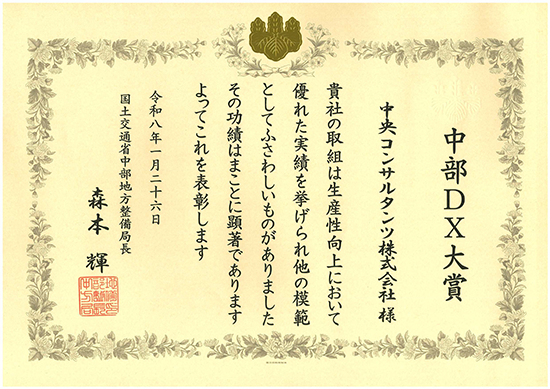 中部DX大賞
中央コンサルタンツ株式会社 様
貴社の取組は生産性向上において
優れた実績を挙げられ他の模範
としてふさわしいものがありました
その功績はまことに顕著であります
よってこれを表彰します
令和八年一月二十六日
国土交通省中部地方整備局長
森本 輝